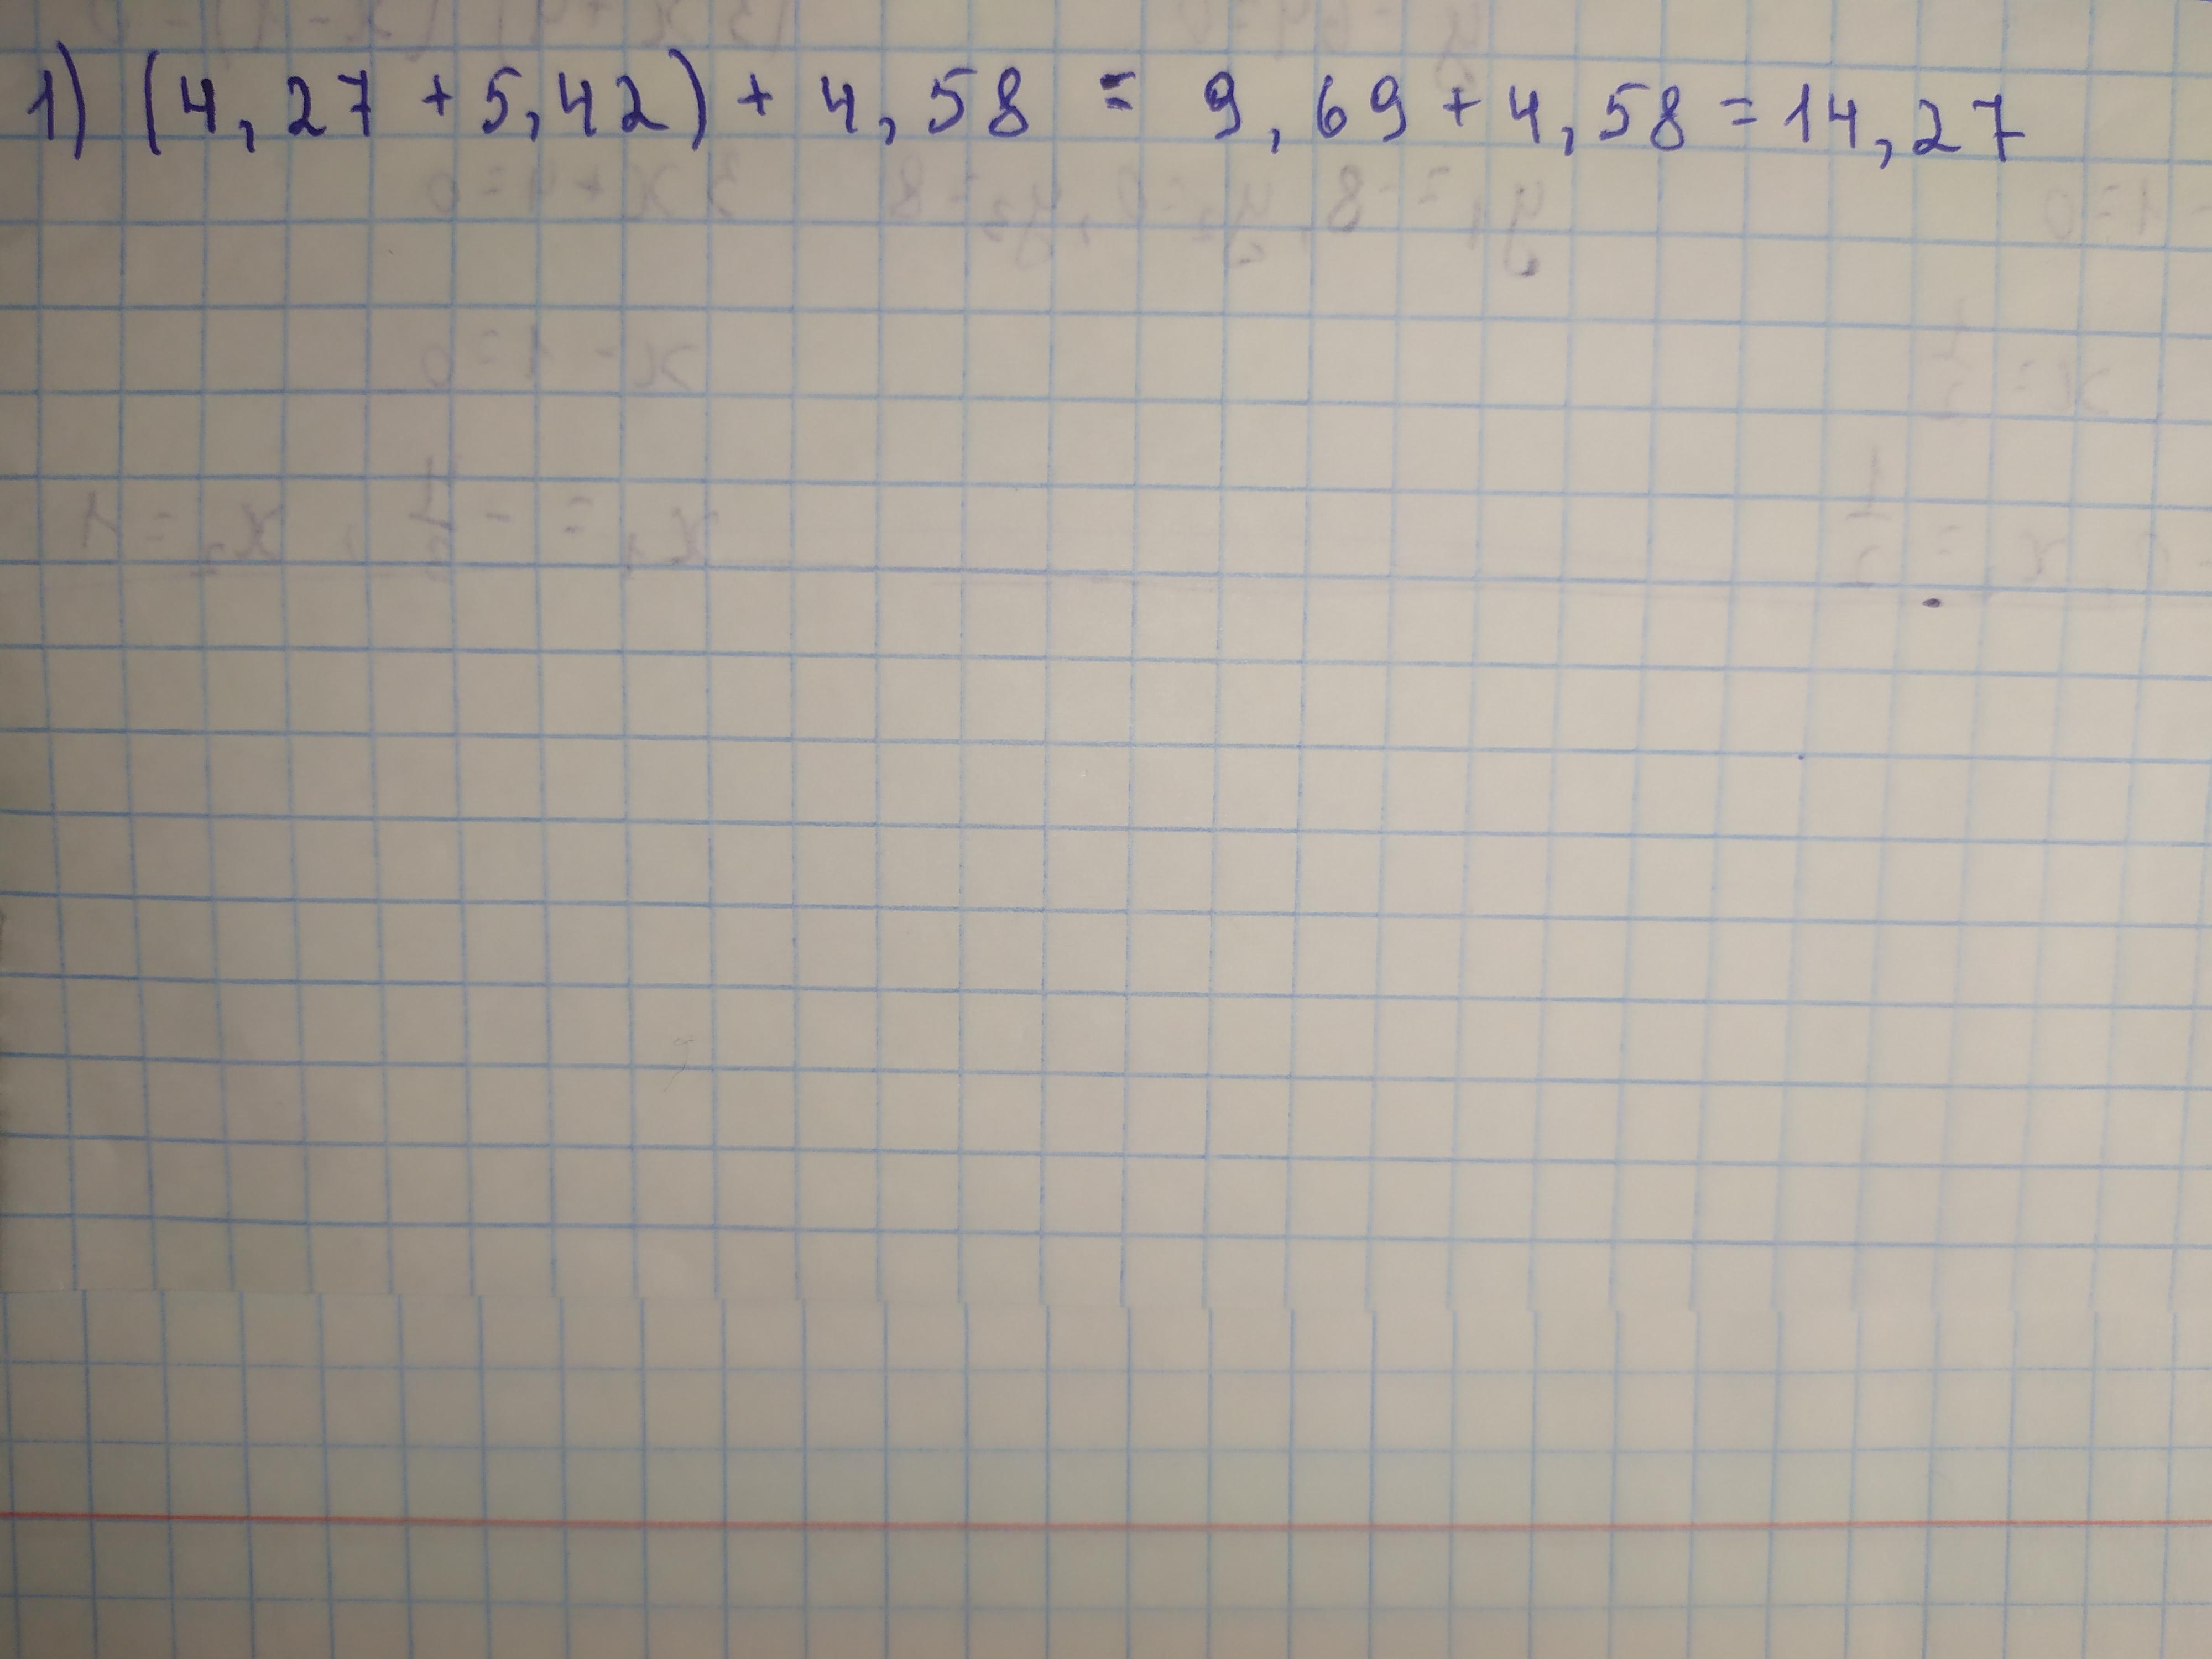 1) (4,27 + 5,42) + 4,58 = 9,69 + 4,58 = 14,27